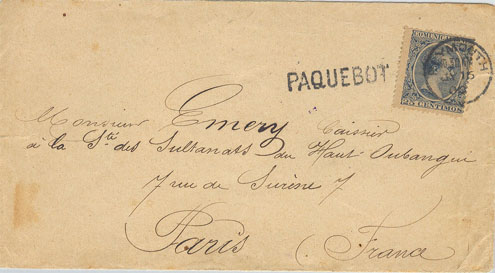 COMUNICACIONES
25 CENTIMOS
PAQUEBOT
MOUTH
15
Monsieur Emery Caissier
à la Sté des Sultanats du Haut Oubangui
7 rue de Surène 7
Paris (France)